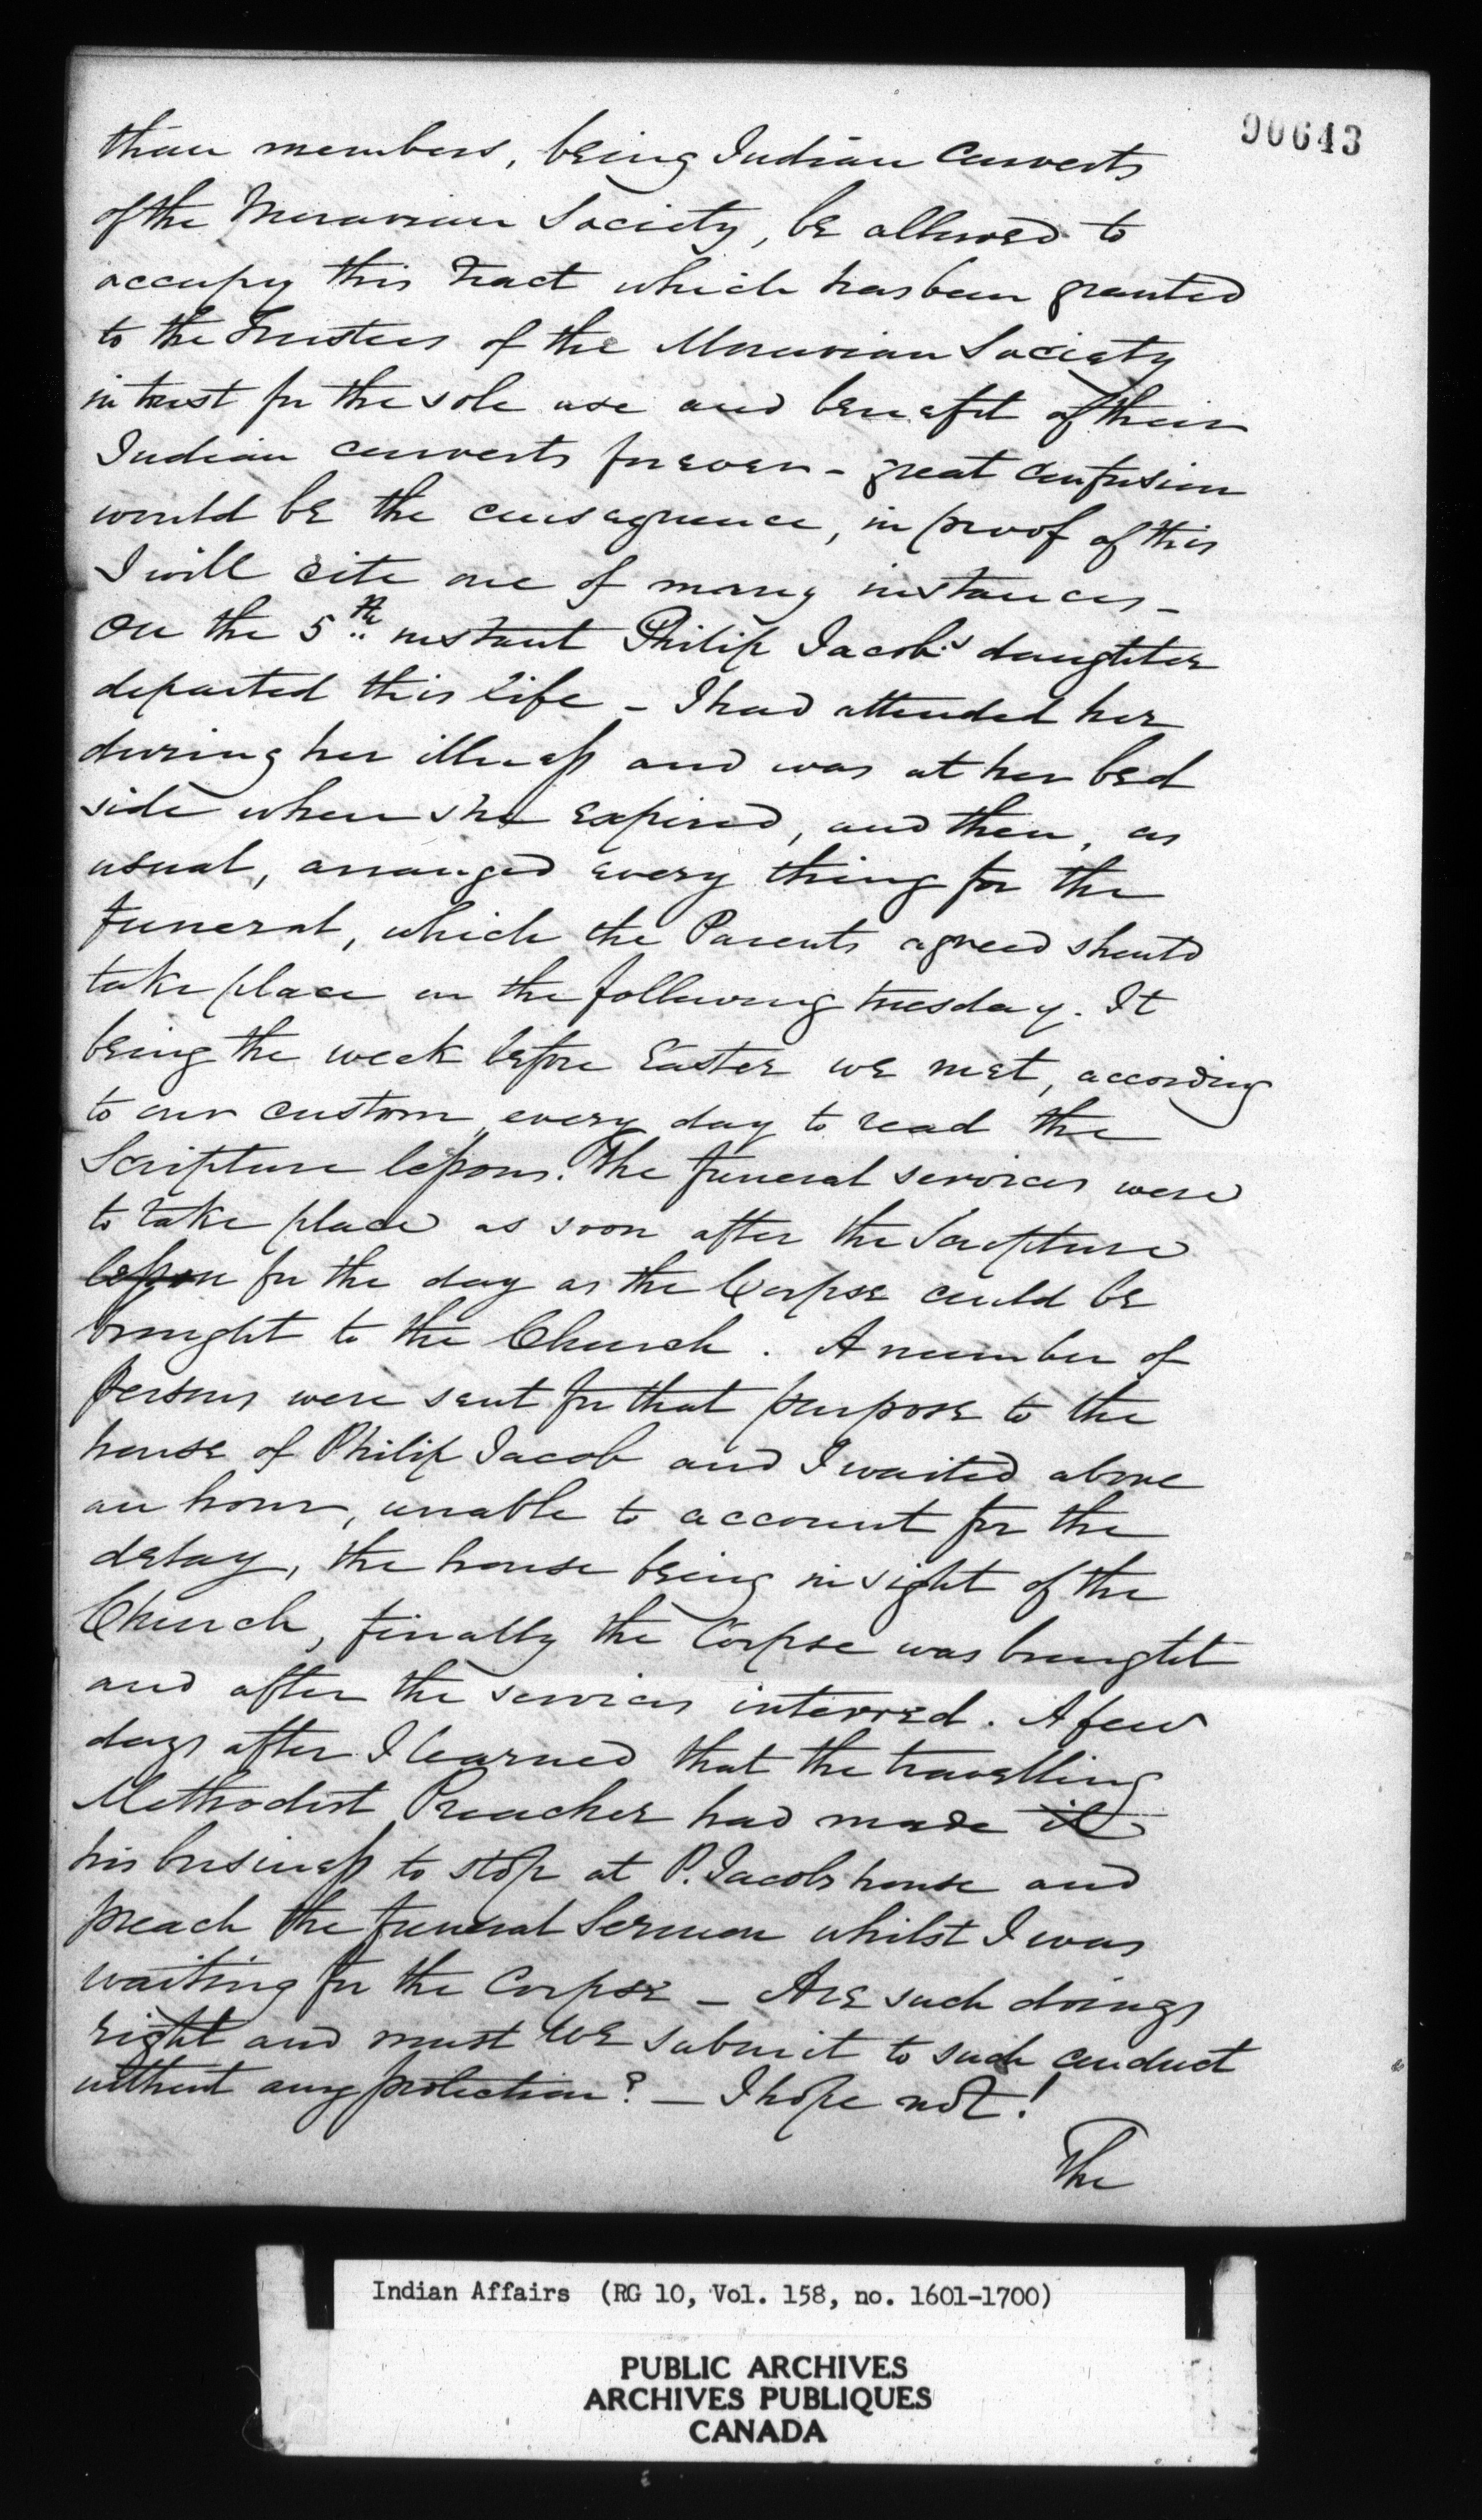 90643
than members, being Indian Converts
of the Moravian Society, be allowed to
occupy this tract which has been granted
to the Trustees of the Moravian Society
in trust for the sole use and benefit of their
Indian converts forever - great confusion
would be the consequence, in proof of this
I will cite one of many instances -
On the 5th instant Philip Jacob's daughter
departed this life - I had attended her
during her illness and was at her bed
side when she expired, and then, as
usual, arranged every thing for the
funeral, which the Parents agreed should
take place on the following tuesday. It
being the week before Easter we met, according
to our custom, every day to read the
Scripture lessons. The funeral services were
to take place as soon after the Scripture
lesson for the day as the Corpse could be
brought to the Church. A number of
persons were sent for that purpose to the
house of Philip Jacob and I waited above
an hour, unable to account for the
delay, the house being in sight of the
Church, finally the Corpse was brought
and after the services interred. A few
days after I learned that the travelling
Methodist Preacher had made it
his business to stop at P. Jacobs house and
preach the funeral Sermon whilst I was
waiting for the Corpse - Are such doings
right and must we submit to such conduct
without any protection? - I hope not!
The
Indian Affairs (RG 10, Vol. 158, no. 1601-1700)
PUBLIC ARCHIVES
ARCHIVES PUBLIQUES
CANADA